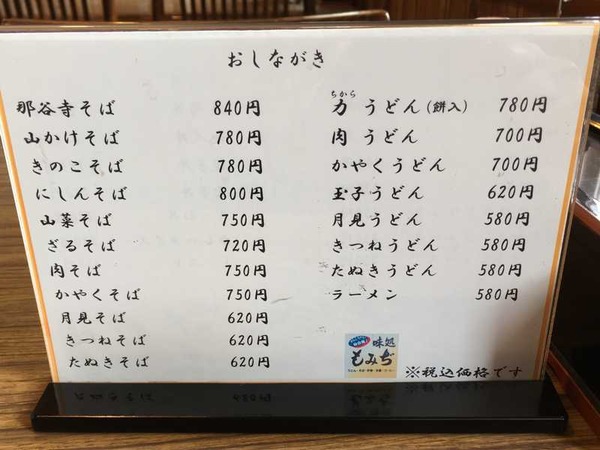 おしながき
那谷寺そば 840円
山かけそば 780円
きのこそば 780円
にしんそば 800円
山菜そば 750円
ざるそば 720円
肉そば 750円
かやくそば 750円
月見そば 620円
きつねそば 620円
たぬきそば 620円
ちから
力うどん(餅入) 780円
肉うどん 700円
かやくうどん 700円
玉子うどん 620円
月見うどん 580円
きつねうどん 580円
たぬきうどん 580円
ラーメン 580円
味処
もみぢ
※税込価格です